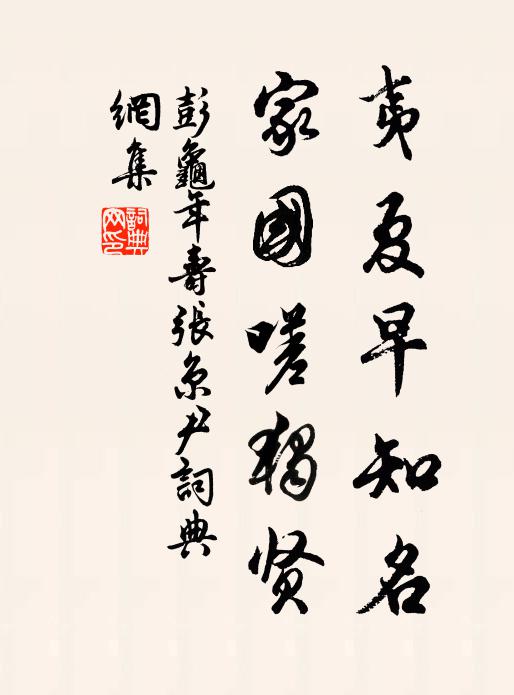 夷夏早知名
家國嗟獨贤
彭龜年壽張京尹詞典
網集
詞典
网印